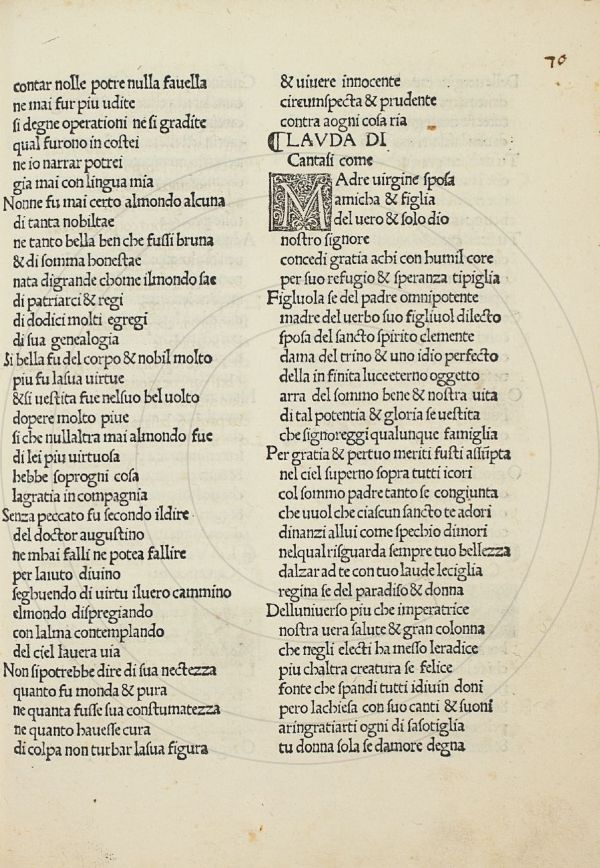 70
contar nolle potre nulla fauella
ne mai fur piu udite
si degne operationi ne si gradite
qual furono in costei
ne io narrar potrei
gia mai con lingua mia
Nonne fu mai certo almondo alcuna
di tanta nobiltae
ne tanto bella ben che fussi bruna
& di somma honestae
nata digrande chome ilmondo sae
di patriarci & regi
di dodici molti egregi
di sua genealogia
Si bella fu del corpo & nobil molto
piu fu lasua uirtue
& si uestita fue nelsuo bel uolto
dopere molto piue
si che nullaltra mai almondo fue
di lei piu uirtuosa
hebbe soprogni cosa
lagratia in compagnia
Senza peccato fu secondo ildire
del doctor augustino
ne mhai falli ne potea fallire
per laiuto diuino
seghuendo di uirtu iluero cammino
elmondo dispregiando
con lalma contemplando
del ciel lauera uia
Non sipotrebbe dire di sua nectezza
quanto fu monda & pura
ne quanta fusse sua constumatezza
ne quanto hauesse cura
di colpa non turbar lasua figura
& uiuere innocente
circumspecta & prudente
contra aogni cosa ria
CLAVDA DI
Cantasi come
MAdre uirgine sposa
amicha & figlia
del uero & solo dio
nostro signore
concedi gratia achi con humil core
per suo refugio & speranza tipiglia
Figluola se del padre omnipotente
madre del uerbo suo figliuol dilecto
sposa del sancto spirito clemente
dama del trino & uno idio perfecto
della in finita luce eterno oggetto
arra del sommo bene & nostra uita
di tal potentia & gloria se uestita
che signoreggi qualunque famiglia
Per gratia & pertuo meriti fusti assūpta
nel ciel superno sopra tutti icori
col sommo padre tanto se congiunta
che uuol che ciascun sancto te adori
dinanzi allui come spechio dimori
nelqual risguarda sempre tuo bellezza
dalzar ad te con tuo laude leciglia
regina se del paradiso & donna
Delluniuerso piu che imperatrice
nostra uera salute & gran colonna
che negli electi ha messo leradice
piu chaltra creatura se felice
fonte che spandi tutti idiuin doni
pero lachiesa con suo canti & suoni
aringratiarti ogni di sasotiglia
tu donna sola se damore degna